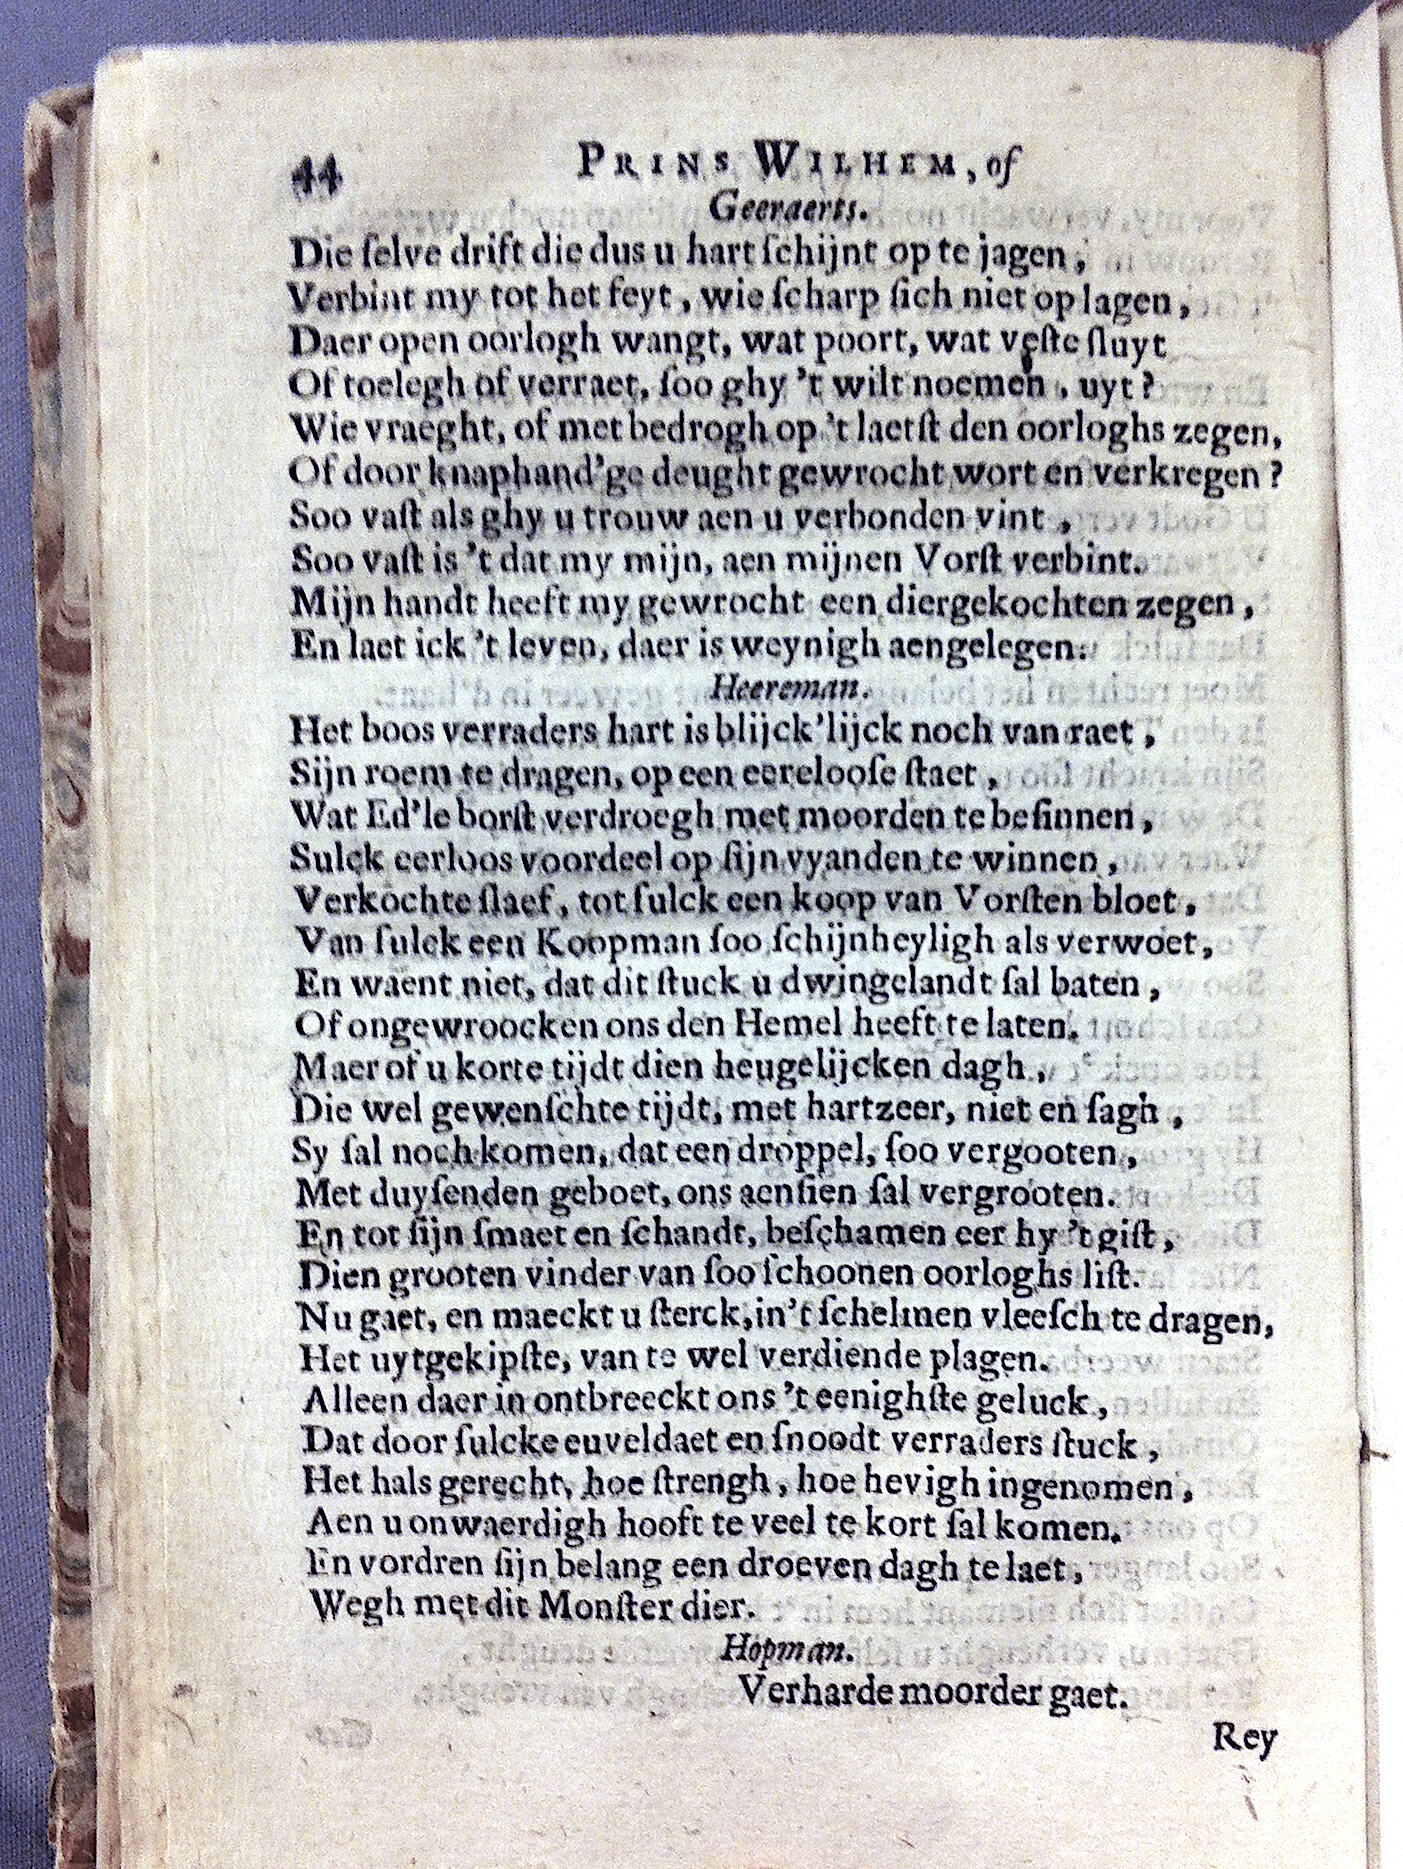 44 PRINS WILHEM, of
Geeraerts.
Die ſelve drift die dus u hart ſchijnt op te jagen,
Verbint my tot het feyt, wie ſcharp ſich niet op lagen,
Daer open oorlogh wangt, wat poort, wat veſte ſluyt
Of toelegh of verraet, ſoo ghy 't wilt noemen, uyt?
Wie vraeght, of met bedrogh op 't laetſt den oorloghs zegen,
Of door knaphand'ge deught gewrocht wort en verkregen?
Soo vaſt als ghy u trouw aen u verbonden vint,
Soo vaſt is 't dat my mijn, aen mijnen Vorſt verbint.
Mijn handt heeft my gewrocht een diergekochten zegen,
En laet ick 't leven, daer is weynigh aengelegen.
Heereman.
Het boos verraders hart is blijck'lijck noch van raet,
Sijn roem te dragen, op een eerelooſe ſtaet,
Wat Ed'le borſt verdroegh met moorden te beſinnen,
Sulck eerloos voordeel op ſijn vyanden te winnen,
Verkochte ſlaef, tot ſulck een koop van Vorſten bloet,
Van ſulck een Koopman ſoo ſchijnheyligh als verwoet,
En waent niet, dat dit ſtuck u dwingelandt ſal baten,
Of ongewroocken ons den Hemel heeft te laten.
Maer of u korte tijdt dien heugelijcken dagh,
Die wel gewenſchte tijdt, met hartzeer, niet en ſagh,
Sy ſal noch komen, dat een droppel, ſoo vergooten,
Met duyſenden geboet, ons aenſien ſal vergrooten.
En tot ſijn ſmaet en ſchandt, beſchamen eer hy 't giſt,
Dien grooten vinder van ſoo ſchoonen oorloghs liſt.
Nu gaet, en maeckt u ſterck, in 't ſchelmen vleeſch te dragen,
Het uytgekipſte, van te wel verdiende plagen.
Alleen daer in ontbreeckt ons 't eenighſte geluck,
Dat door ſulcke euveldaet en ſnoodt verraders ſtuck,
Het hals gerecht, hoe ſtrengh, hoe hevigh ingenomen,
Aen u onwaerdigh hooft te veel te kort ſal komen.
En vordren ſijn belang een droeven dagh te laet,
Wegh met dit Monſter dier.
Hopman.
Verharde moorder gaet.
Rey